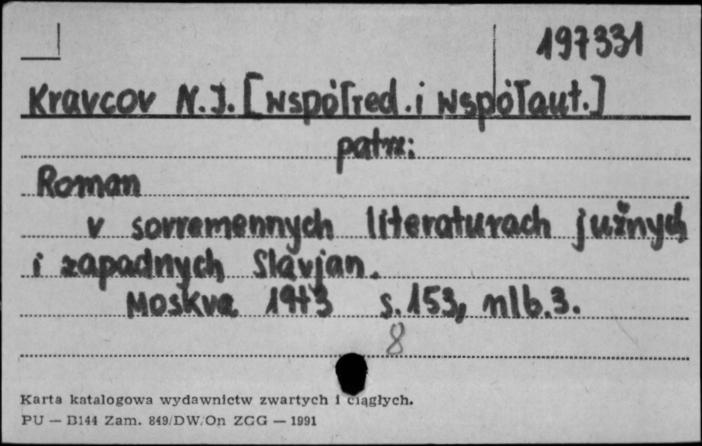 197331
Kravcov N.I. [współred. i współaut.]
patrz:
Roman
v sovremennych literaturach južnych
i zapadnych Slavjan.
Moskva 1973 s. 153, nlb. 3.
8
Karta katalogowa wydawnictw zwartych i ciągłych.
PU — B144 Zam. 849/DW/On ZGG — 1991